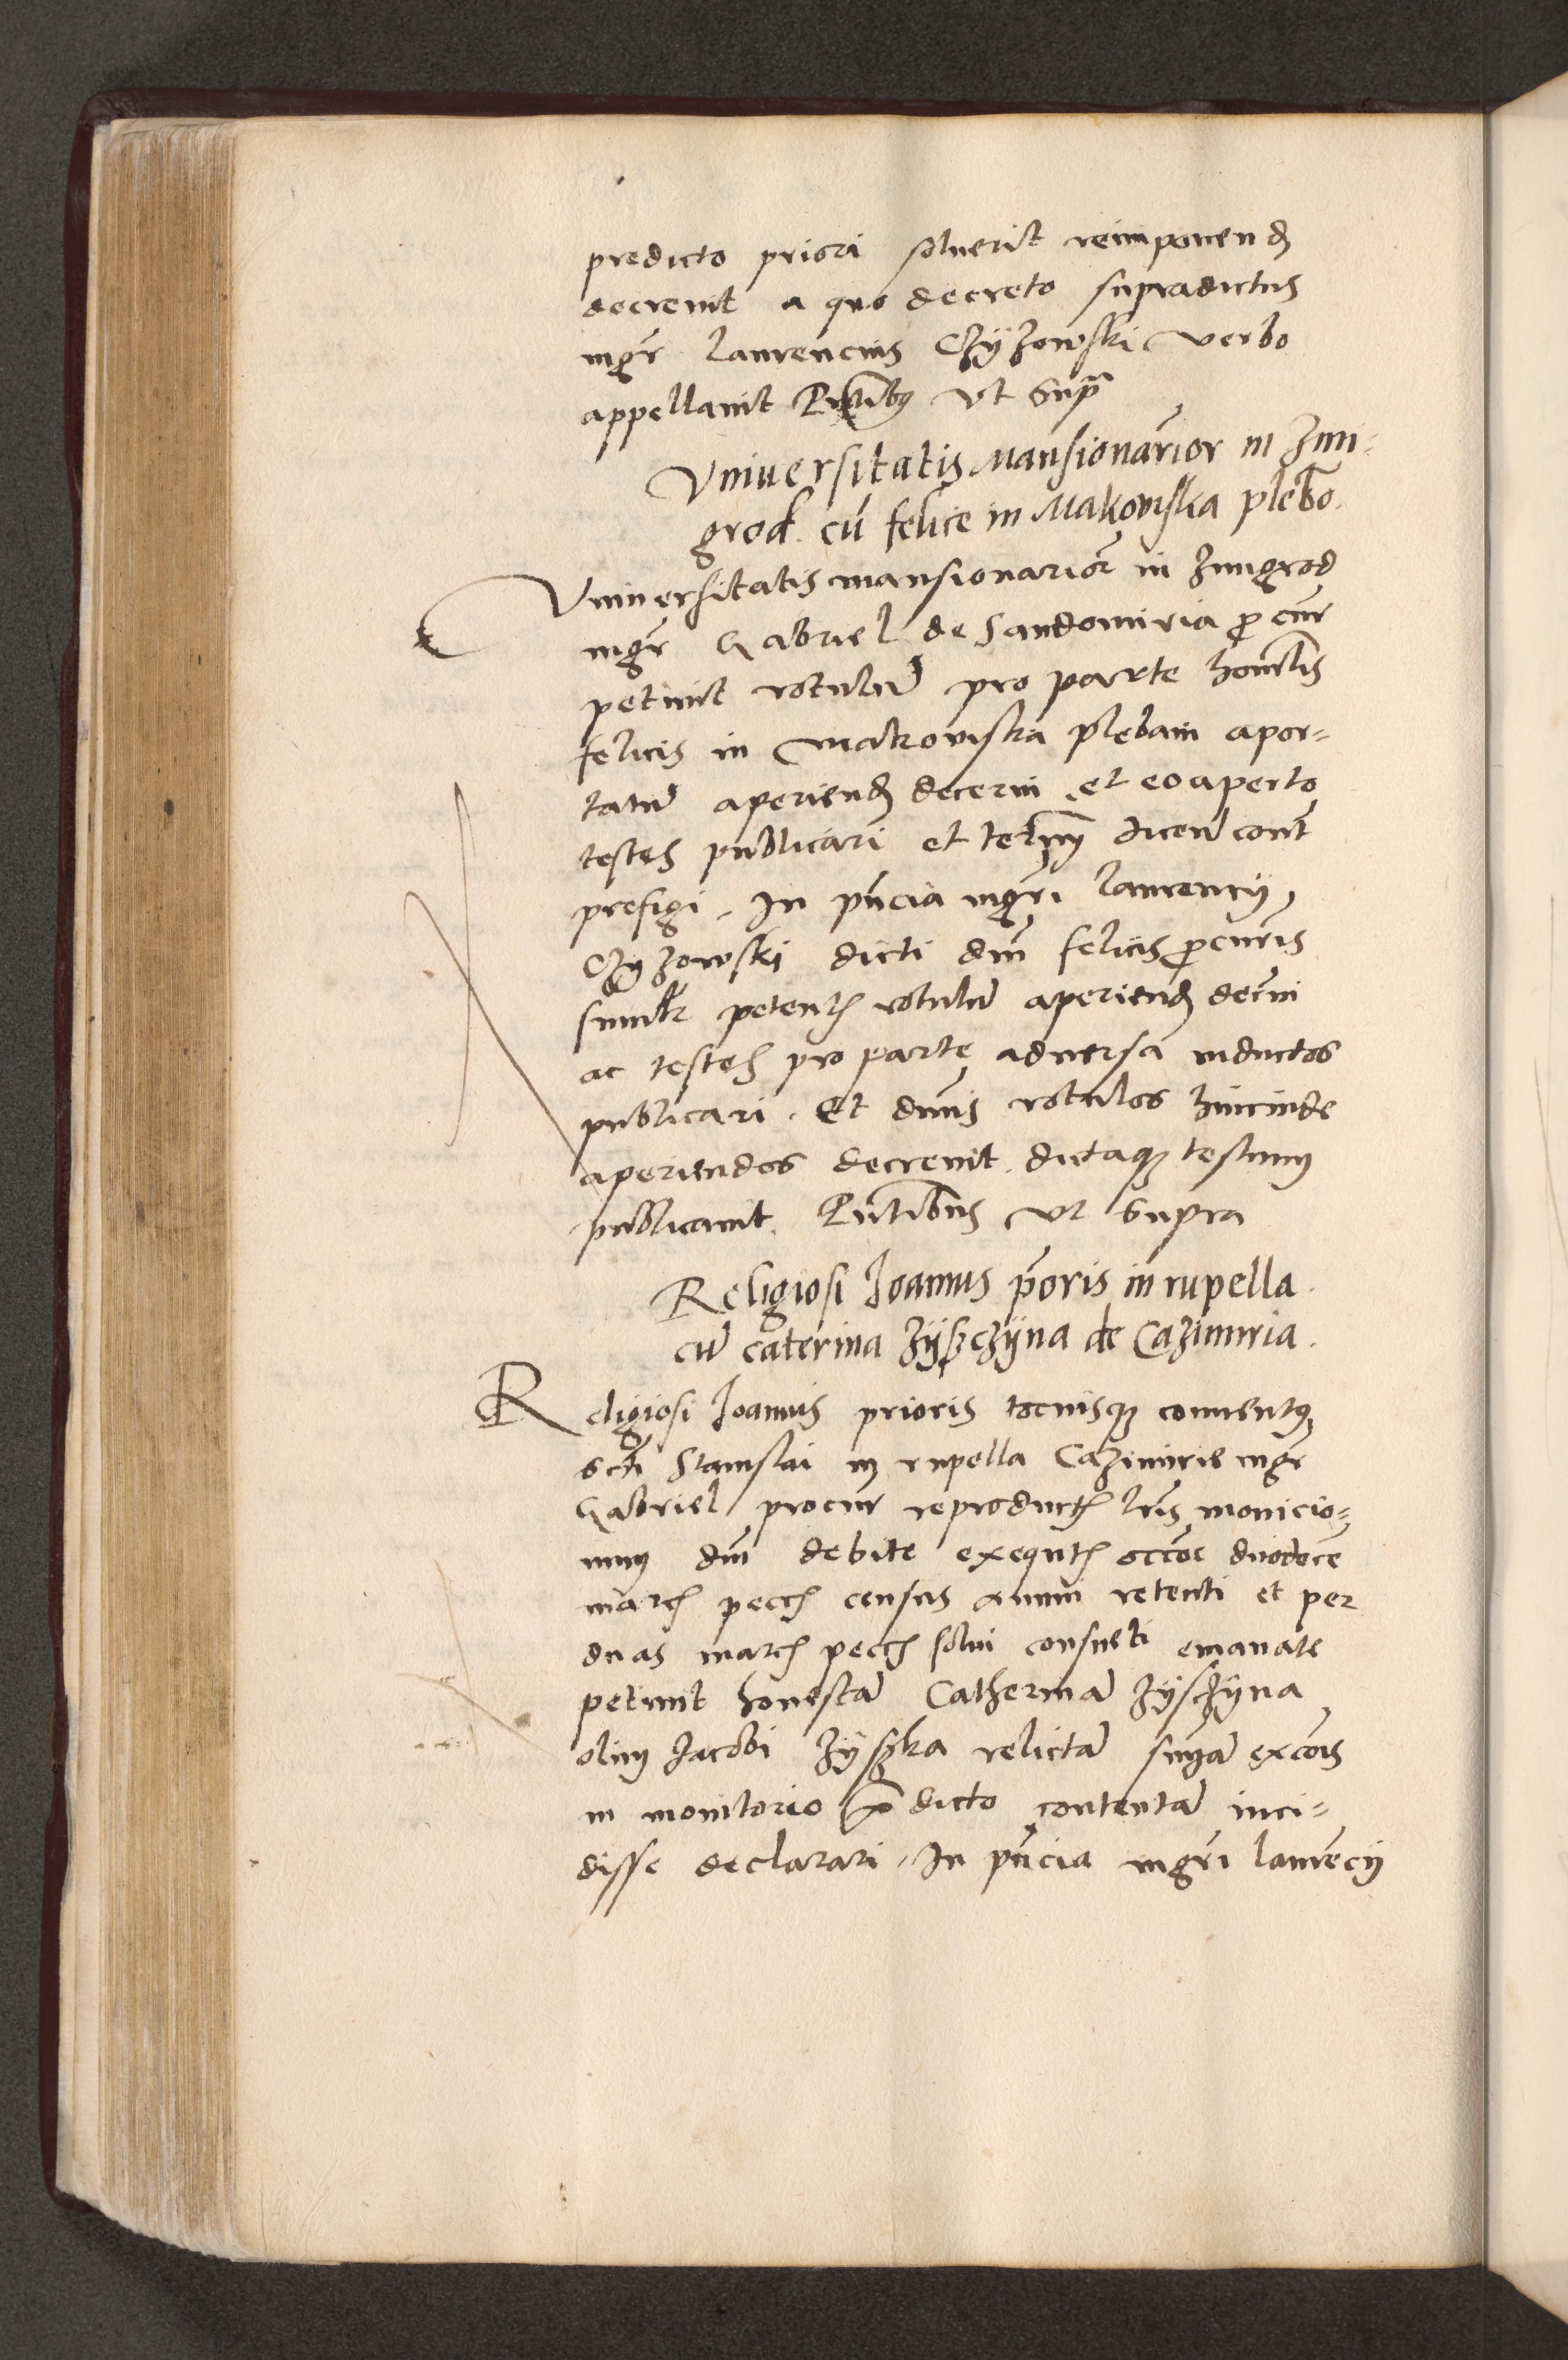 predicto priori soluerit reimponend
decreuit a quo decreto supradictus
mgr Laurencius Czÿzowski verbo
appellauit Pntibus vt Supra
Vniuersitatis Mansionarior in Zmi⸗
grod. cu felice in Makowiska plebano.
Vniuersitatis mansionarior in Zmigrod
mgr Gabriel de Sandomiria procur
petiuit rotulum pro parte honorabilis
felicis in Makowiska plebani apor⸗
tatum aperiend decerni et eo aperto
testes publicari et terminum dicend contra
prefigi. In pncia mgri Laurency
Czyzowski dicti dni felicis procuris
similr petent rotulum aperiend decerni
ac testes pro parte aduersa inductos
publicari. Et dnus rotulos hincinde
aperiendos decreuit. dictaque testium
publicauit. Pntibus vt Supra
Religiosi Joannis prioris in rupella
cum caterina Zÿszczÿna de Cazimiria.
Religiosi Joannis prioris tociusque conuentus
scti Stanislai in rupella Cazimirie mgr
Gabriel procur reproductis lris monicio⸗
num dni debite exequtis occoe duodece
marcis peccis census annui retenti et per
duas marcis peccis solui consueti emanatis
petiuit honestam Catherinam Zÿsczÿna
olim Jacobi Zÿszka relictam sniam excois
in monitorio predicto contentam inci⸗
disse declarari. In pncia mgri Laurecij